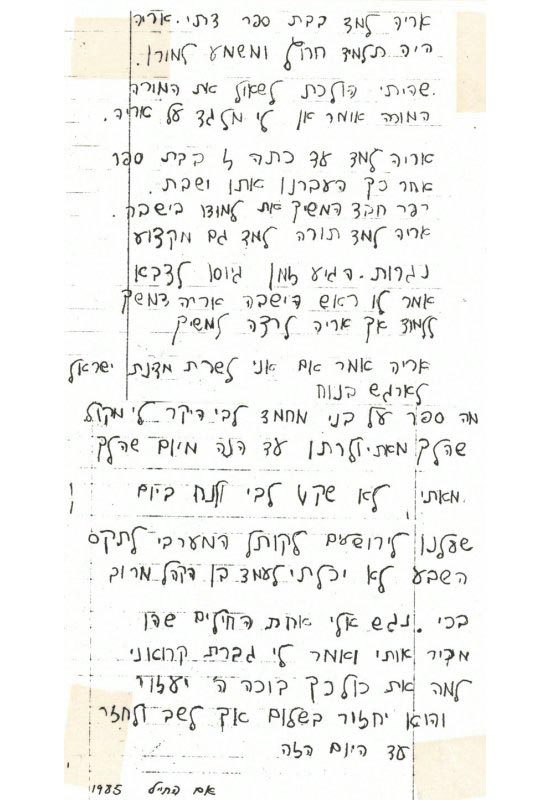 אריה למד בבת ספר דתי. אריה
היה תלמיד חרוץ ומשמע למורן.
שהיתי הולכת לשאול את המורה
המורה אומר אן לי מלגד על אריה.
אריה למד עד כתה ל בבת ספר
אחר כך העברנו אתו ושבת.
כפר חבד המשיך את למודו בישבה.
אריה למד תורה למד גם מקצוע
נגרות. הגיע זמן גיוסו לצבא
אמר לו ראש הישבה אריה דמשק
ללמוד אך אריה לרצה למשיק
אריה אמר אם אני לשרת מדנת ישראל
לארגש בנוח
מה ספר על בני מחמד לבי היקר לי מקול
שהלך מאתי ולרתו עד הנה מיום שהלך
מאתי לא שקט לבי ולנח ביום
שעלנו לירושעים לקותל המערבי לתקס
השבע לא יכלתי לעמד בן הקהל מרוב
בכי. נגש אלי אחת החילים שהן
מכיר אותי ואמר לי גברת קרואני
למה את כולכך בוכה ה' יעזור
והוא יחזור בשלום אך לשב ולחזר
עד היום הזה
אם החיל 1985